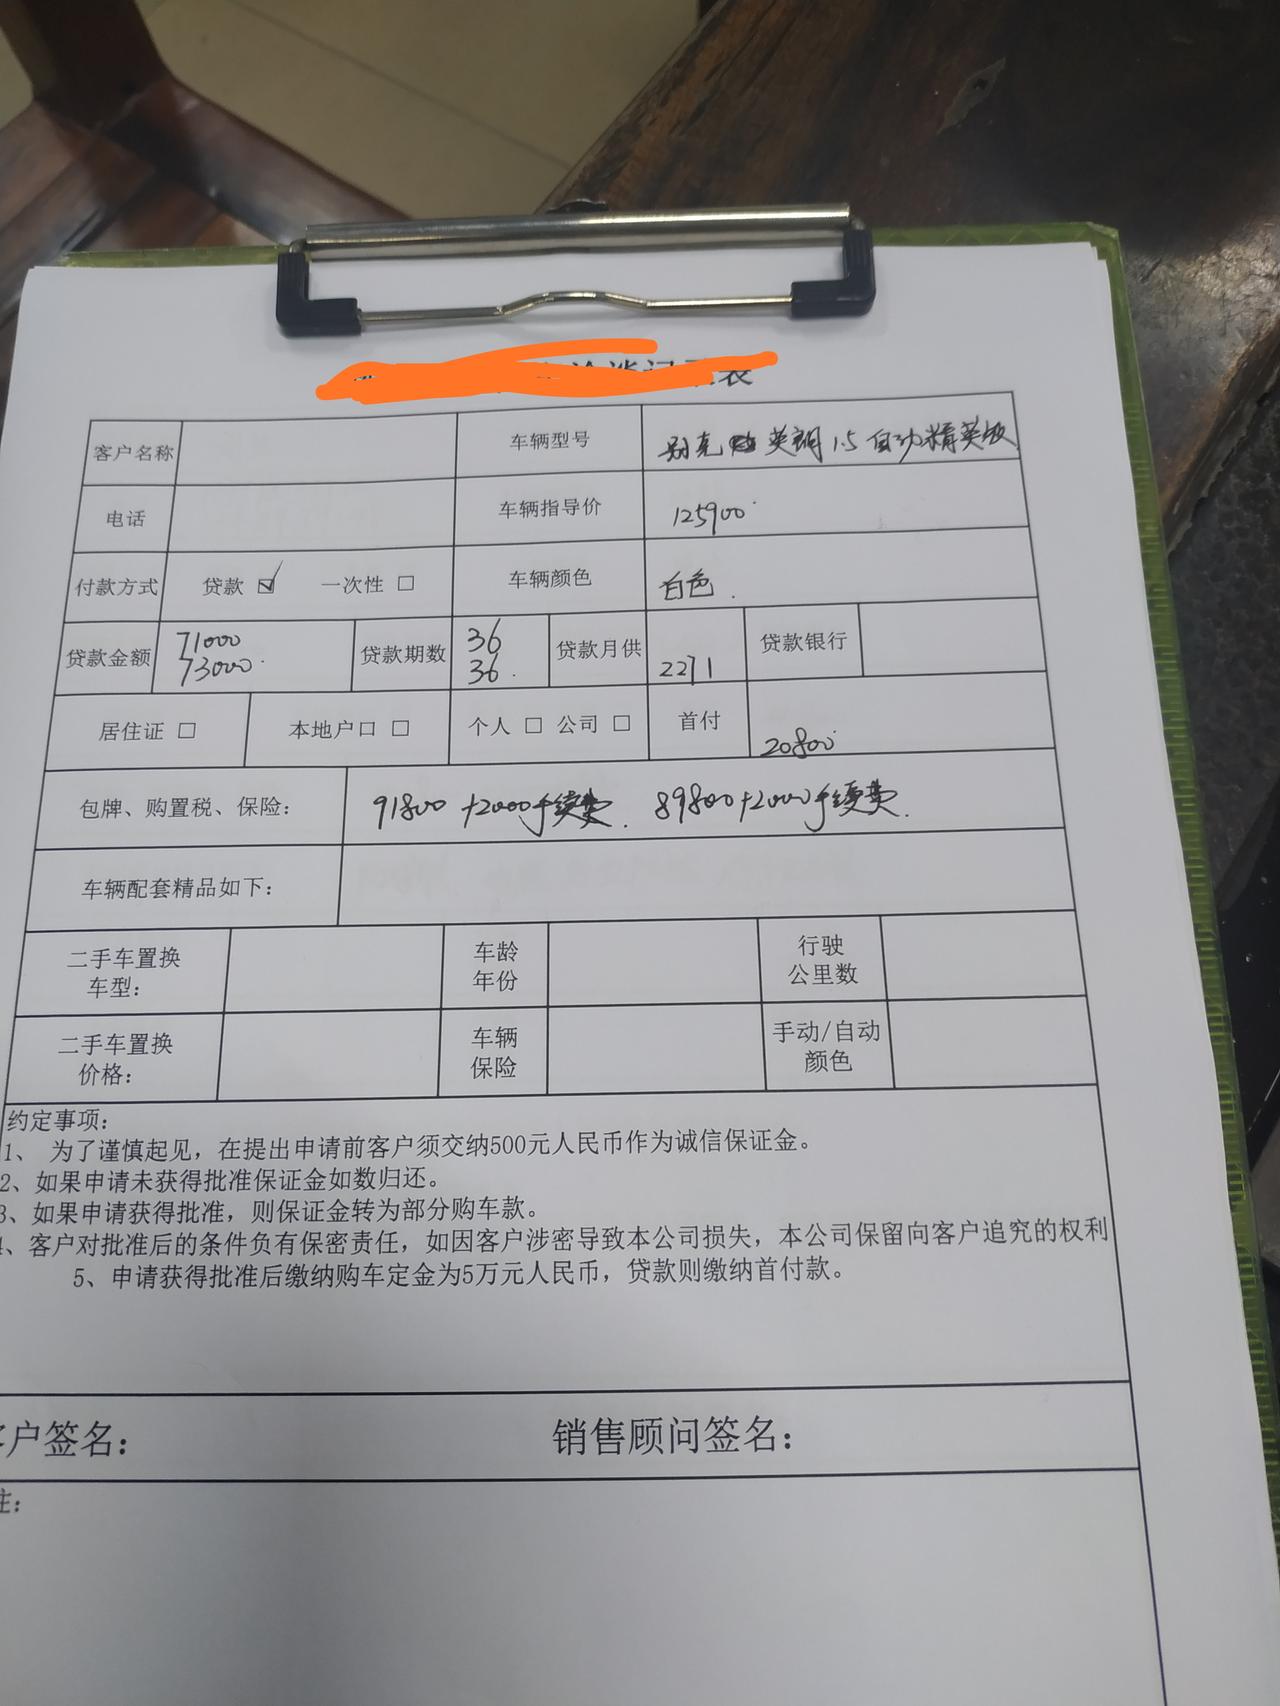 洽谈记录表
客户名称 车辆型号 别克 英朗 1.5 自动精英版
电话 车辆指导价 125900
付款方式 贷款 ☑ 一次性 □ 车辆颜色 白色.
贷款金额 71000 73000. 贷款期数 36 36. 贷款月供 2271 贷款银行
居住证 □ 本地户口 □ 个人 □ 公司 □ 首付 20800
包牌、购置税、保险: 91800 +2000手续费. 89800+2000手续费.
车辆配套精品如下:
二手车置换车型: 车龄年份 行驶公里数
二手车置换价格: 车辆保险 手动/自动颜色
约定事项:
1、 为了谨慎起见, 在提出申请前客户须交纳500元人民币作为诚信保证金。
2、如果申请未获得批准保证金如数归还。
3、如果申请获得批准, 则保证金转为部分购车款。
4、客户对批准后的条件负有保密责任, 如因客户涉密导致本公司损失, 本公司保留向客户追究的权利
5、申请获得批准后缴纳购车定金为5万元人民币, 贷款则缴纳首付款。
客户签名: 销售顾问签名:
注: